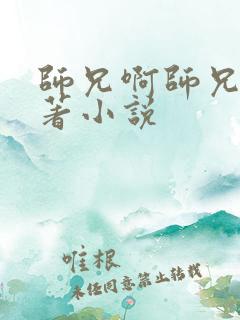 師兄啊師兄
著小説
唯根
未经同意禁止转载